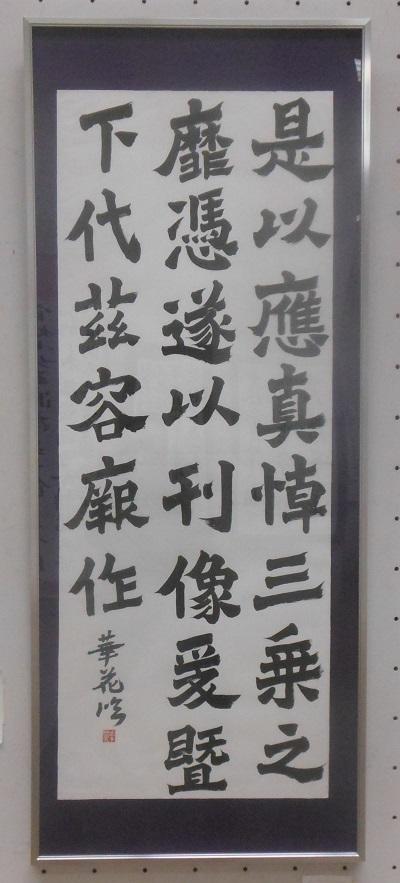 是以應真悼三乗之
靡憑遂以刊像爰暨
下代茲容厥作
華花臨